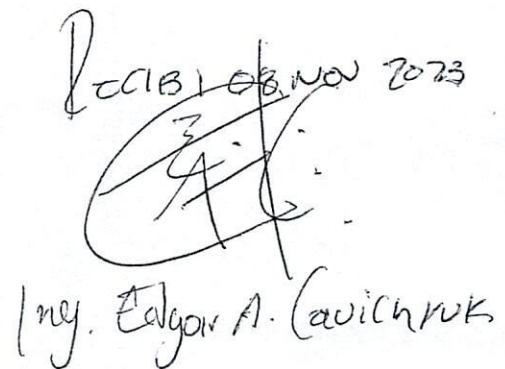 RECIBI 08 NOV 2023
Ing. Edgar A. Cavichruk